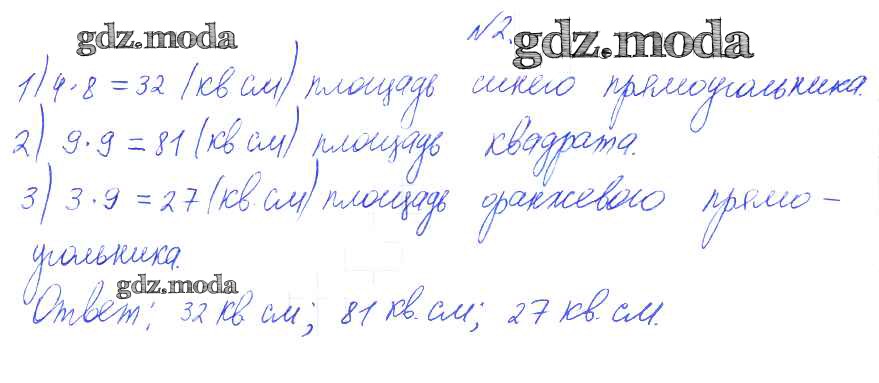 gdz.moda №2. gdz.moda
1) 4·8 = 32 (кв см) площадь синего прямоугольника.
2) 9·9 = 81 (кв см) площадь квадрата.
3) 3·9 = 27 (кв. см) площадь оранжевого прямо-
угольника.
gdz.moda
Ответ: 32 кв. см; 81 кв. см; 27 кв. см.